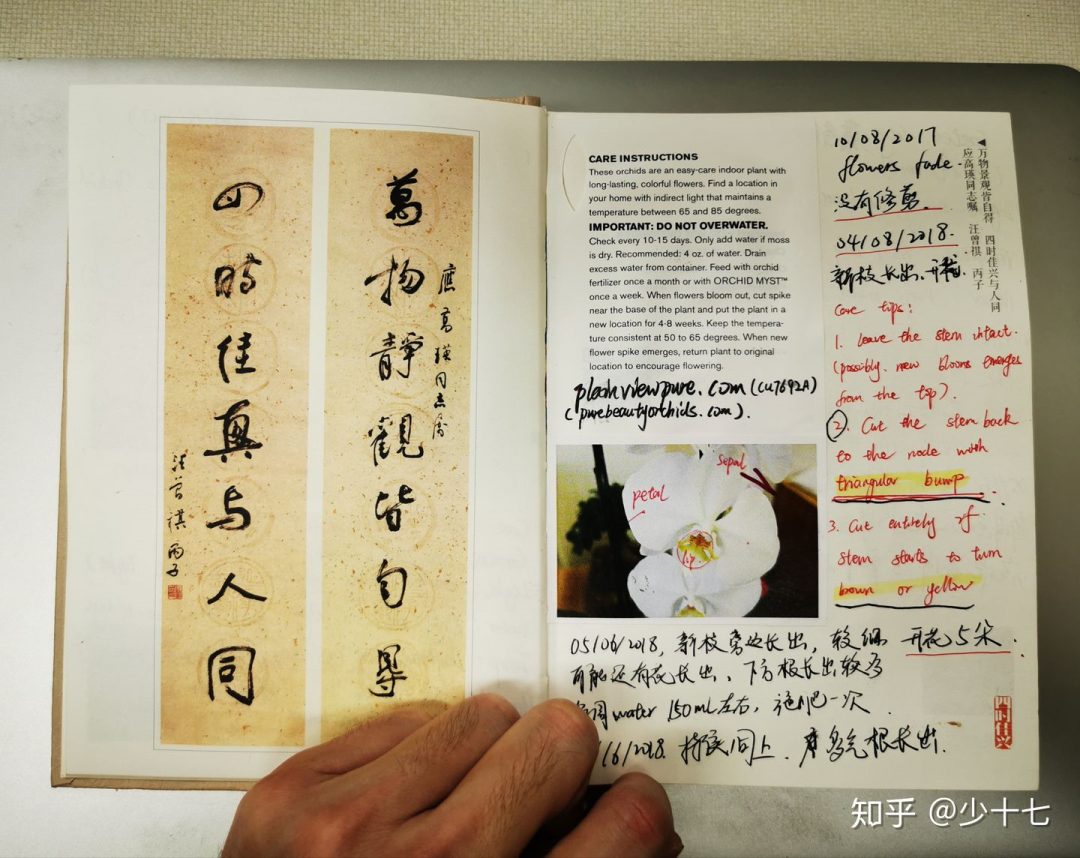 萬物靜觀皆自得
應高瑛同志屬
四時佳興与人同
汪曾祺 丙子
CARE INSTRUCTIONS
These orchids are an easy-care indoor plant with
long-lasting, colorful flowers. Find a location in
your home with indirect light that maintains a
temperature between 65 and 85 degrees.
IMPORTANT: DO NOT OVERWATER.
Check every 10-15 days. Only add water if moss
is dry. Recommended: 4 oz. of water. Drain
excess water from container. Feed with orchid
fertilizer once a month or with ORCHID MYST™
once a week. When flowers bloom out, cut spike
near the base of the plant and put the plant in a
new location for 4-8 weeks. Keep the tempera-
ture consistent at 50 to 65 degrees. When new
flower spike emerges, return plant to original
location to encourage flowering.
(cu7692A)
(purebeautyorchids.com).
petal
sepal
lip
10/08/2017
flowers fade.
没有修剪.
04/08/2018.
新枝长出、开花.
Care tips:
1. Leave the stem intact.
(possibly. new blooms emerges
from the top).
2. Cut the stem back
to the node with
triangular bump
3. Cut entirely if
stem starts to turn
brown or yellow
◀万物景观皆自得 四时佳兴与人同
应高瑛同志嘱 汪曾祺 丙子
05/06/2018, 新枝旁边长出, 较细 开花5朵.
可能还有花长出、下方根长出较多
周water 150mL左右, 施肥一次.
/6/2018. 根长出.
四时佳兴
知乎 @少十七